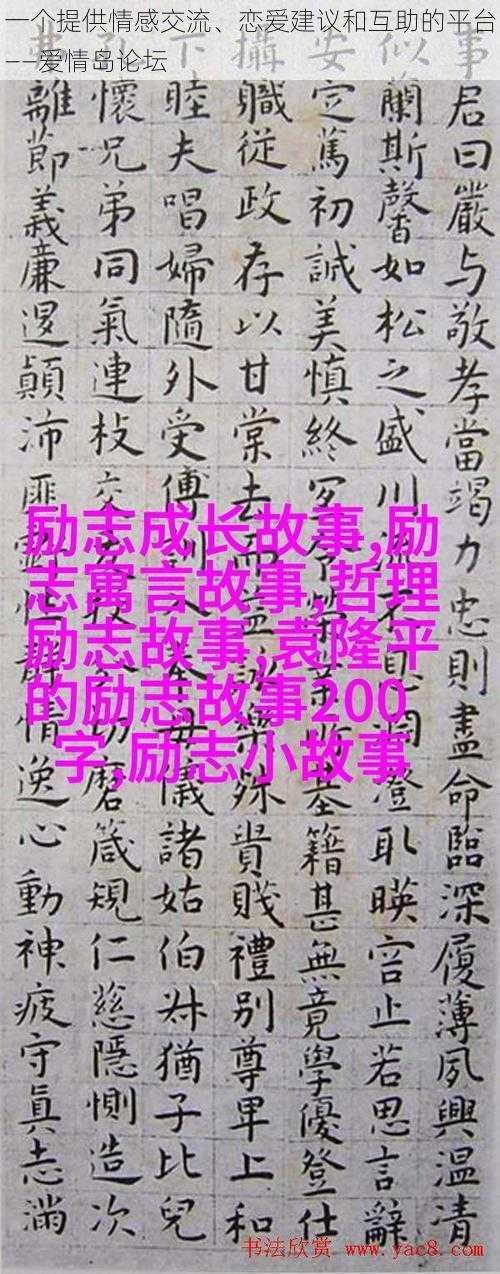 一个提供情感交流、恋爱建议和互助的平台
——爱情岛论坛
事君曰嚴与敬孝當竭力忠則盡命臨深履薄夙興温清
似蘭斯馨如松之盛川流不息淵澄取暎容止若思言辭
安定篤初誠美慎終宜令榮業所基籍甚無竟學優登仕
攝職從政存以甘棠去而益詠樂殊貴賤禮別尊卑上和
下睦夫唱婦隨外受傅訓入奉母儀諸姑伯叔猶子比兒
孔懷兄弟同氣連枝交友投分切磨箴規仁慈隱惻造次
弗離節義廉退顛沛匪虧性靜情逸心動神疲守真志滿
励志成长故事,励
志寓言故事,哲理
励志故事,袁隆平
的励志故事200
字,励志小故事
书法欣赏 www.yac8.com